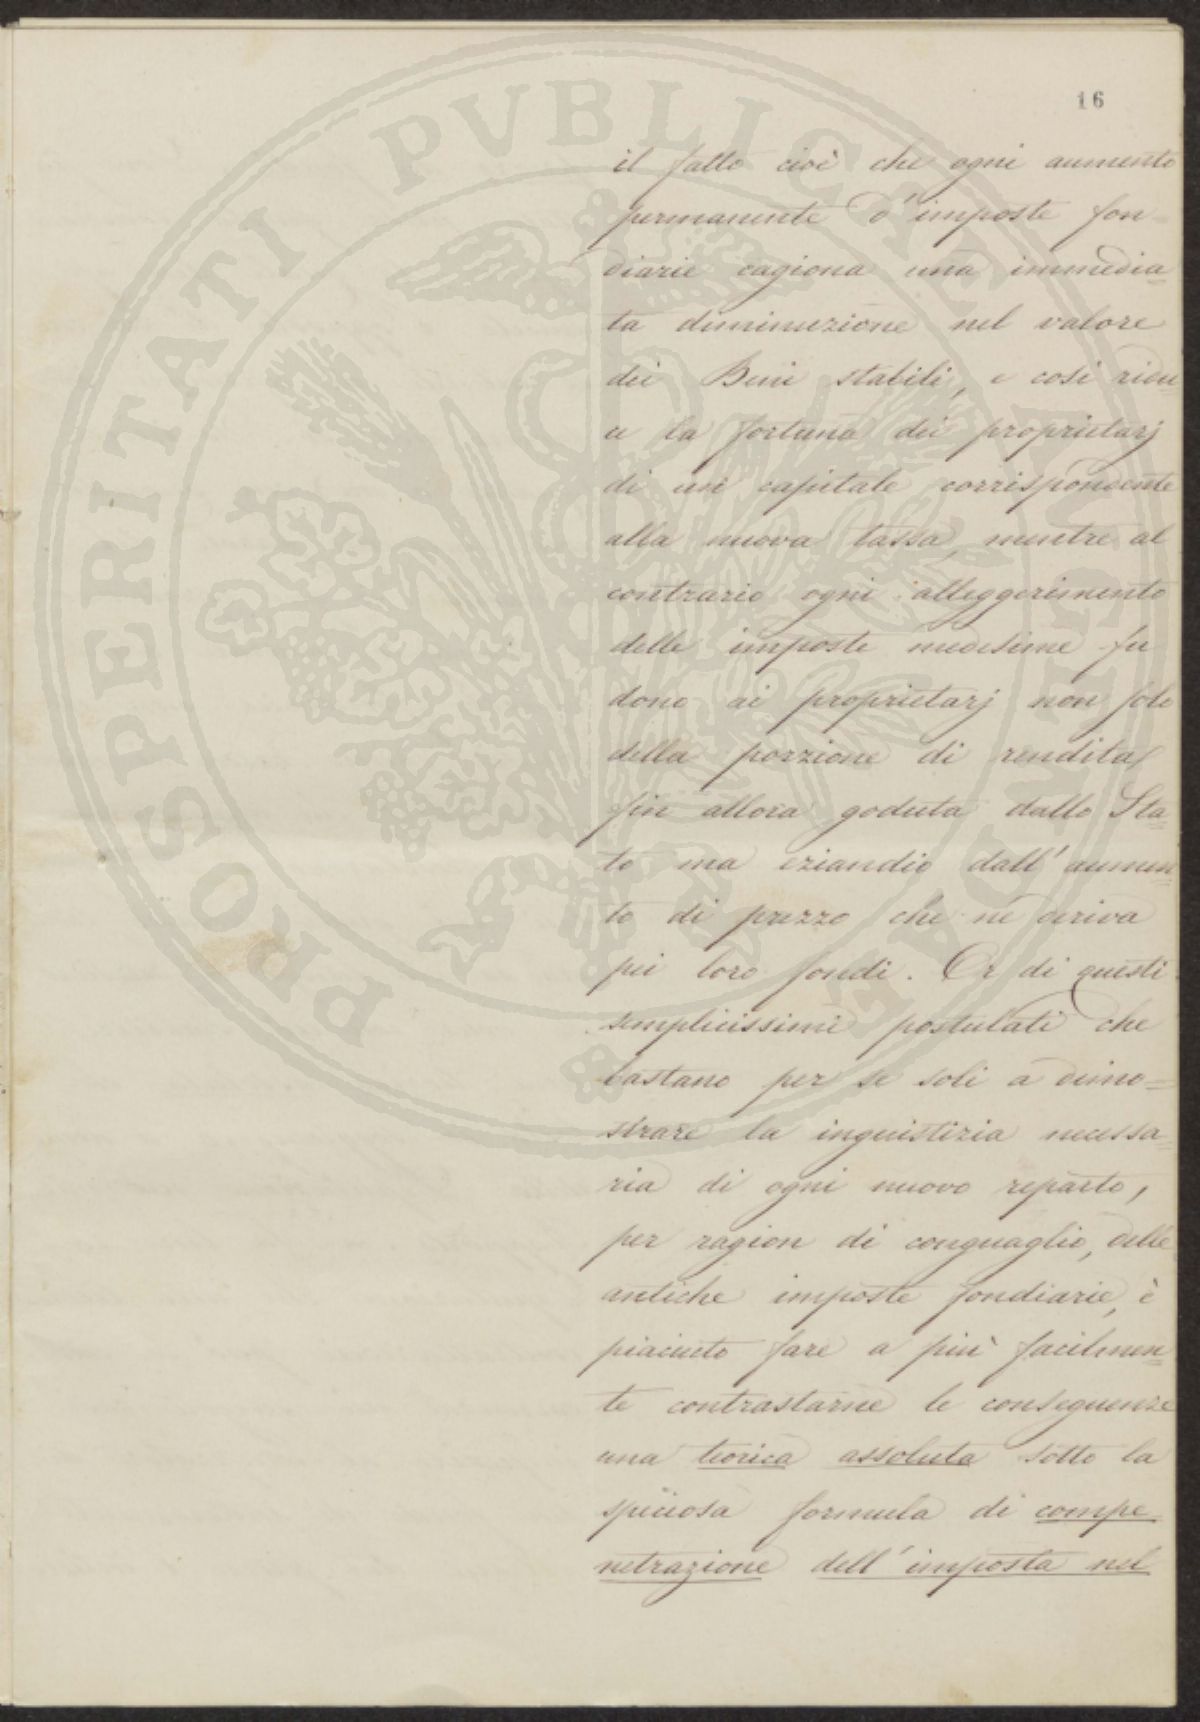 16
il fatto cioè che ogni aumento
permanente d'imposte fon=
diarie cagiona una immedia=
ta diminuzione nel valore
dei Beni stabili, e così ridu
ce la fortuna dei proprietarj
di un capitale corrispondente
alla nuova tassa, mentre al
contrario ogni alleggerimento
delle imposte medesime fu
dono ai proprietarj non solo
della porzione di rendita
fin allora goduta dallo Sta=
to ma eziandio dall'aumen=
to di prezzo che ne deriva
pei loro fondi. Or di questi
semplicissimi postulati che
bastano per se soli a dimo=
strare la inguistizia necessa=
ria di ogni nuovo reparto,
per ragion di conguaglio, delle
antiche imposte fondiarie, è
piaciuto fare a più facilmen=
te contrastarne le conseguenze
una teorica assoluta sotto la
speciosa formula di compe
netrazione dell'imposta nel
PROSPERITATI PVBLICAE AVGENDAE